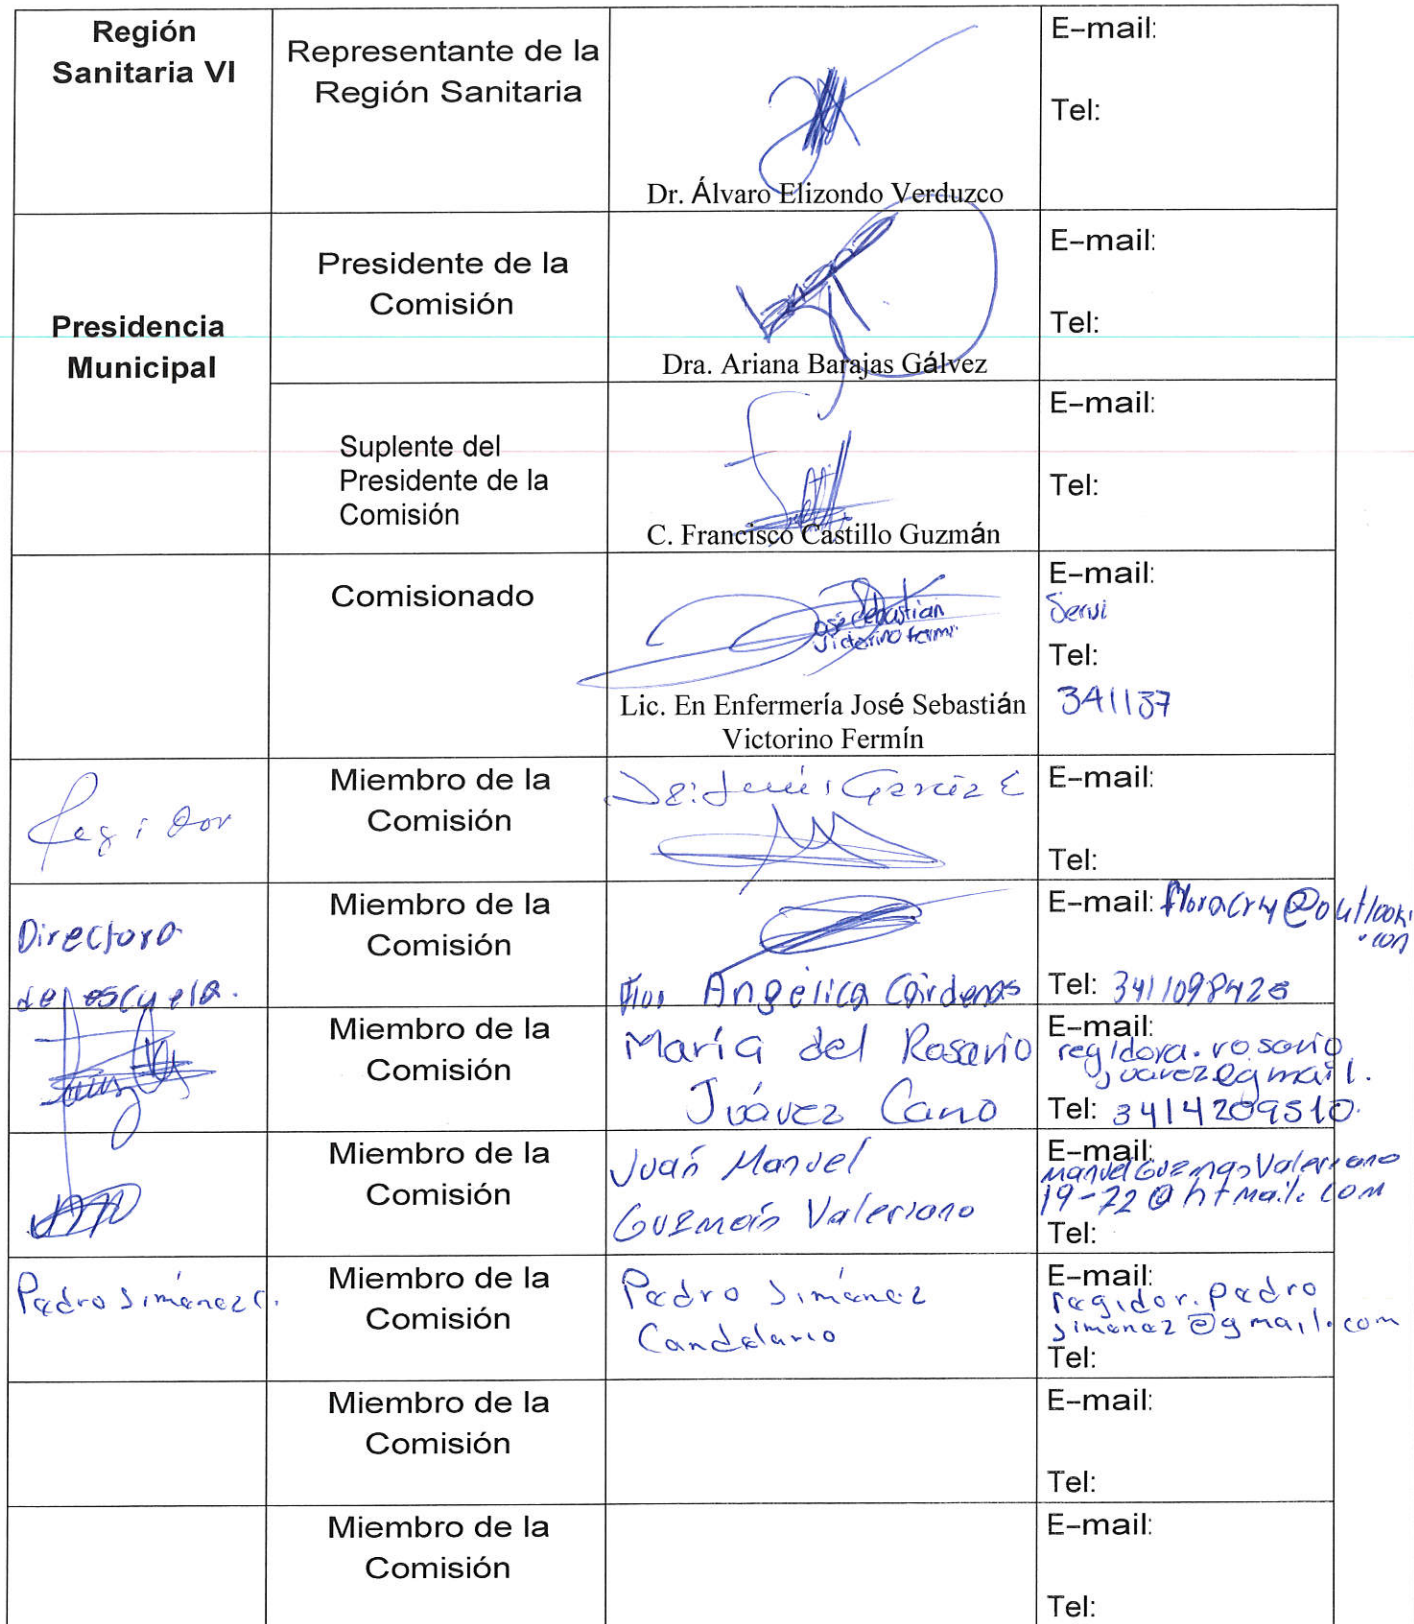 Región
Sanitaria VI
Representante de la
Región Sanitaria
Dr. Álvaro Elizondo Verduzco
E-mail:
Tel:
Presidencia
Municipal
Presidente de la
Comisión
Dra. Ariana Barajas Gálvez
E-mail:
Tel:
Suplente del
Presidente de la
Comisión
C. Francisco Castillo Guzmán
E-mail:
Tel:
Comisionado
José Sebastian
Victorino Fermi
Lic. En Enfermería José Sebastián
Victorino Fermín
E-mail:
Servi
Tel:
341137
Regidor
Miembro de la
Comisión
Jesús García
E-mail:
Tel:
Directora
de escuela.
Miembro de la
Comisión
Angélica Cárdenas
E-mail:
@outlook
.com
Tel: 3411098428
Miembro de la
Comisión
María del Rosario
Juávez Cano
E-mail:
regidora.rosario
juarez@gmail.
Tel: 3414209510.
Miembro de la
Comisión
Juan Manuel
Guzmán Valeriano
E-mail:
manuelGuzmanValeriano
19-72@htmail.com
Tel:
Pedro Jiménez C.
Miembro de la
Comisión
Pedro Jiménez
Candelario
E-mail:
regidor.pedro
jimenez@gmail.com
Tel:
Miembro de la
Comisión
E-mail:
Tel:
Miembro de la
Comisión
E-mail:
Tel: